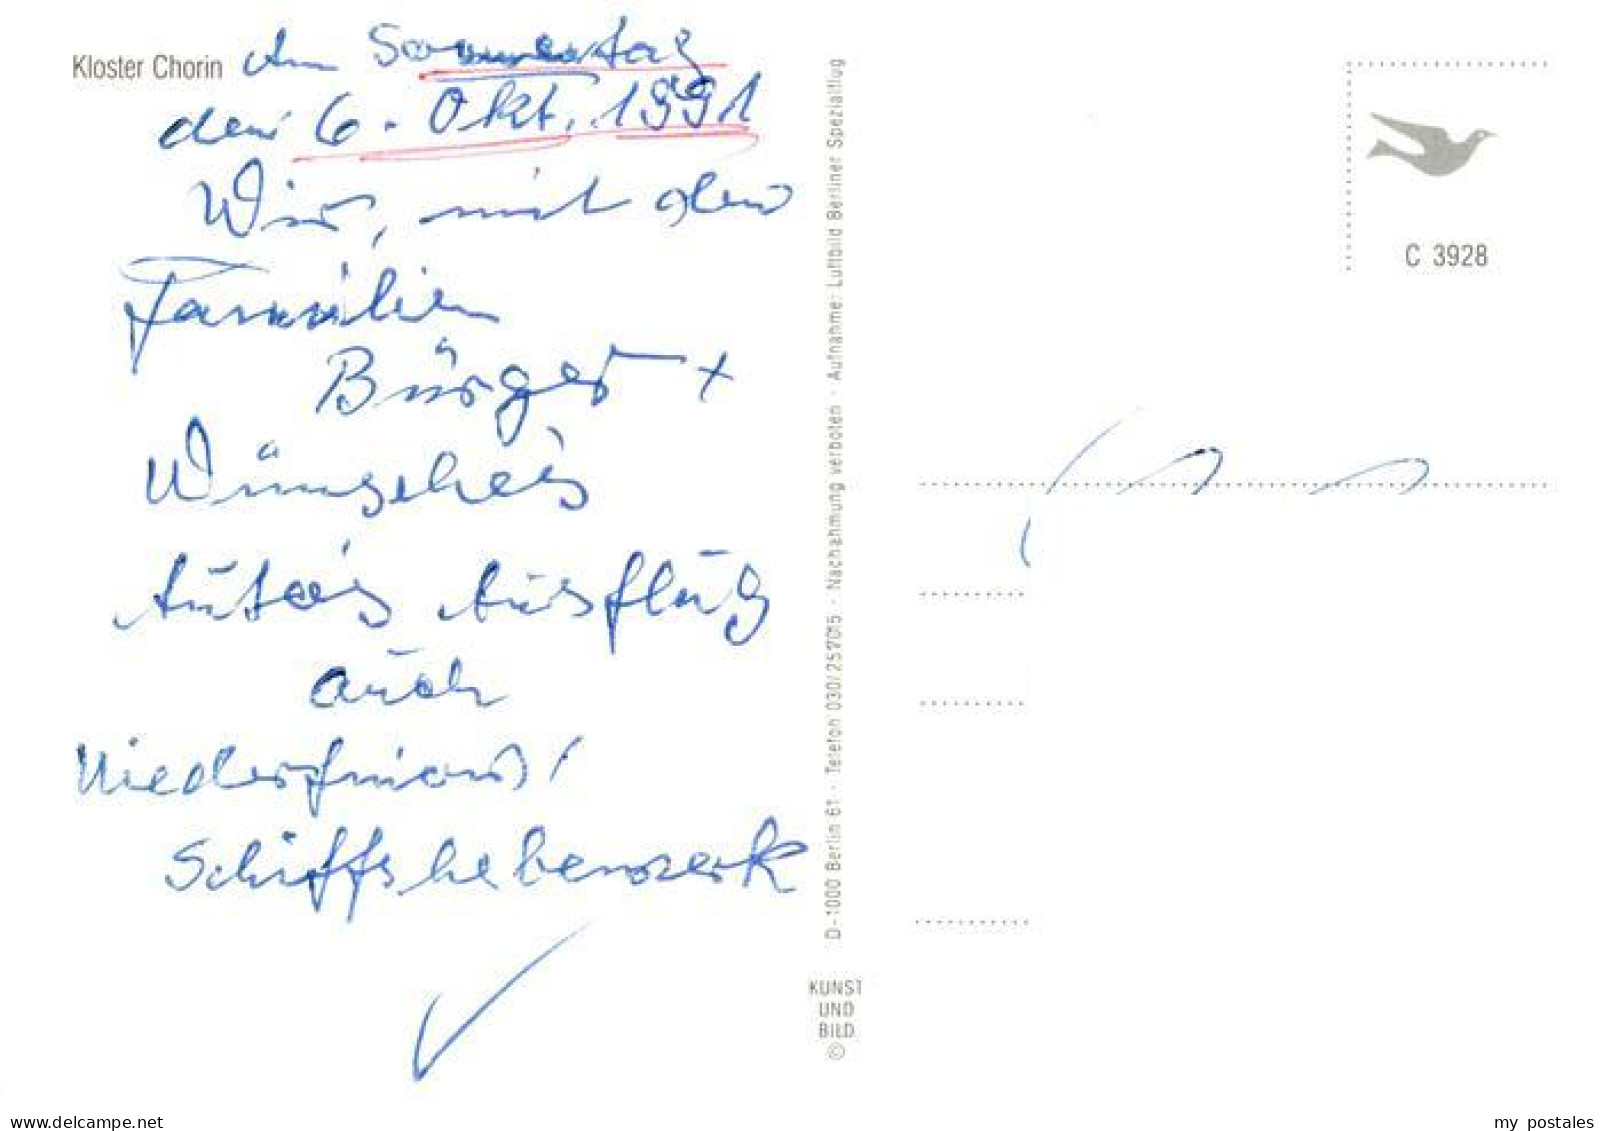 Kloster Chorin
Am Sonnentag
den 6. Okt. 1991
Wir, mit den
Familien
Bürger +
Auto Ausflug
auch
Niederfinow,
Schiffshebewerk
D-1000 Berlin 61 · Telefon 030/257015 · Nachahmung verboten · Aufnahme: Luftbild Berliner Spezialflug
KUNST
UND
BILD
©
C 3928
delcampe.net
my_postales